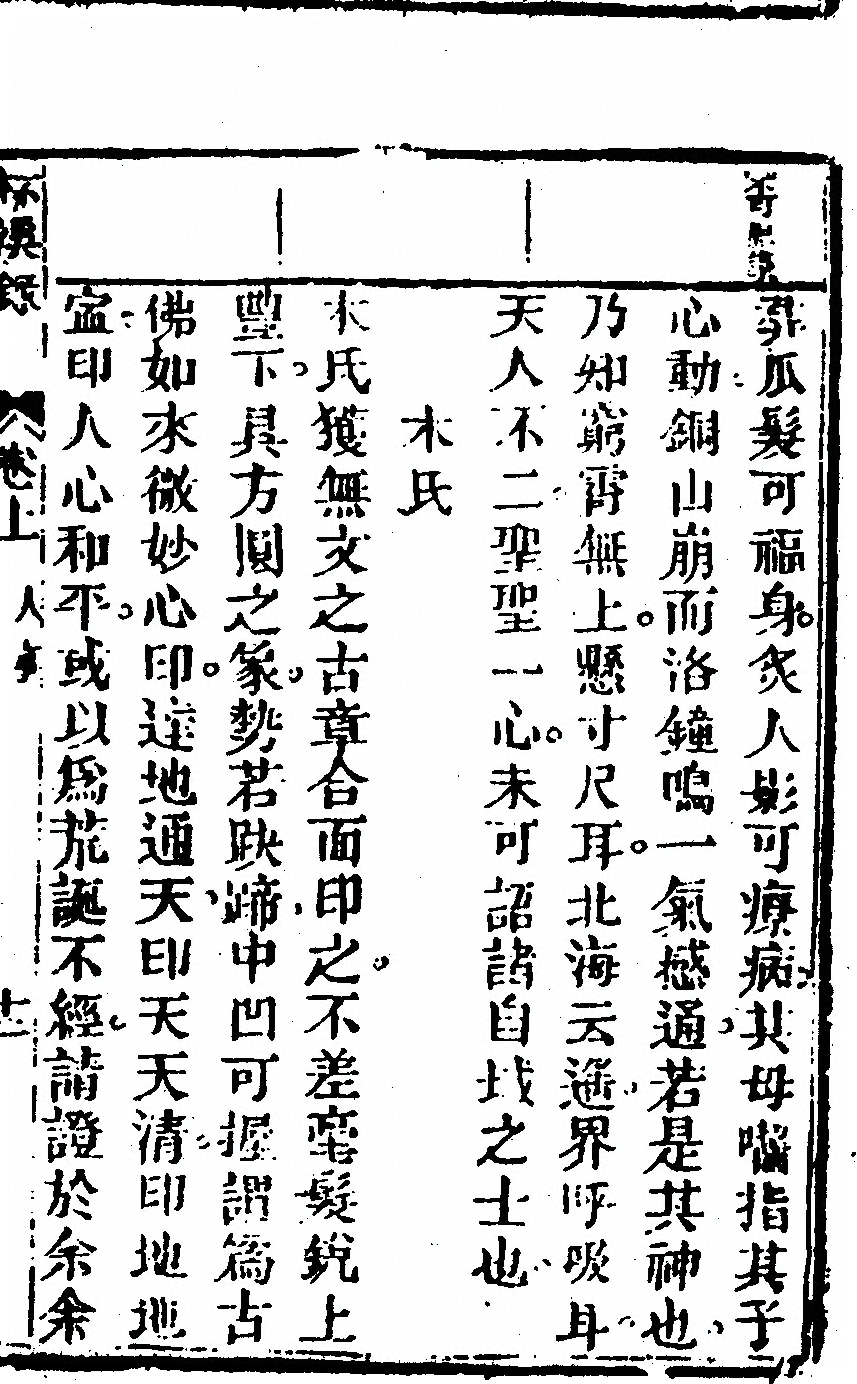 爪髮可福身炙人影可療病其母嚙指其子
心動銅山崩而洛鐘鳴一氣感通若是其神也
乃知窮霄無上懸寸尺耳北海云遙界呼吸耳
天人不二聖聖一心未可語諸自域之士也
木氏
木氏獲無文之古章合面印之不差毫髮銳上
豐下具方圓之象勢若趺蹄中凹可握謂爲古
佛如來微妙心印達地通天印天天清印地地
寍印人心和平或以爲荒誕不經請證於余余
溪錄
卷上
人事
十二